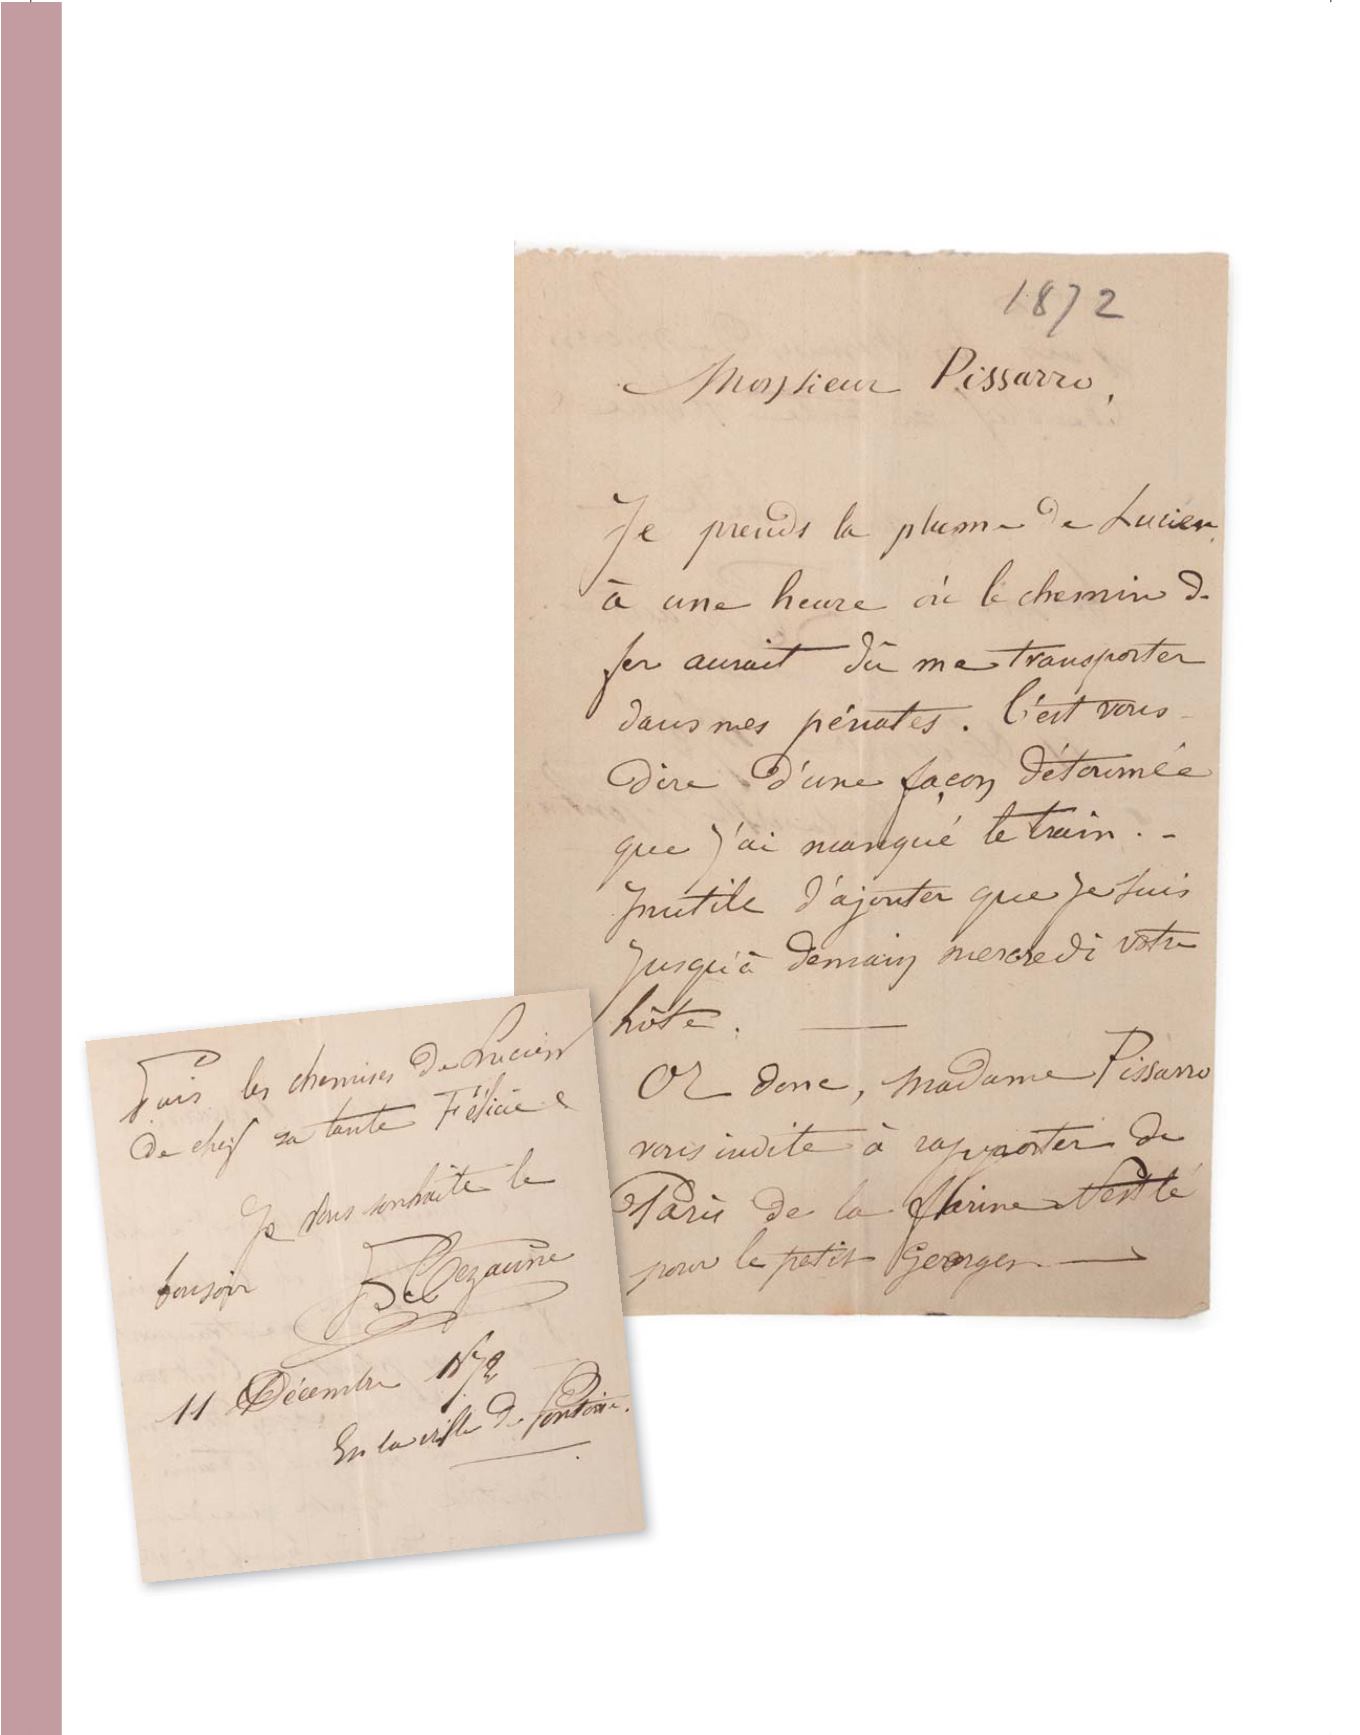 1872
Monsieur Pissarro,
Je prends la plume de Lucien,
à une heure où le chemin de
fer aurait dû me transporter
dans mes pénates. C'est vous
dire d'une façon détournée
que j'ai manqué le train. -
Inutile d'ajouter que je suis
jusqu'à demain mercredi votre
hôte. —
Or donc, madame Pissarro
vous invite à rapporter de
Paris de la farine Nestlé
pour le petit Georges. —
Puis les chemises de Lucien
de chez sa tante Félicie
Je vous souhaite le
bonsoir
Paul Cezanne
11 Décembre 1872
En la ville de Pontoise.